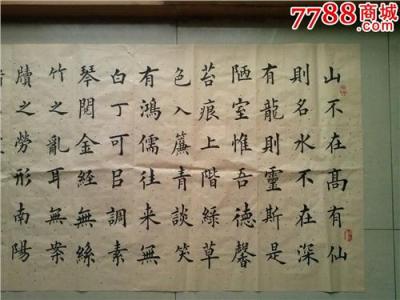 7788商城
.com
山不在髙有仙
則名水不在深
有龍則靈斯是
陋室惟吾德馨
苔痕上階綠草
色入簾青談笑
有鴻儒往来無
白丁可㠯調素
琴閱金經無絲
竹之亂耳無案
牘之勞形南陽